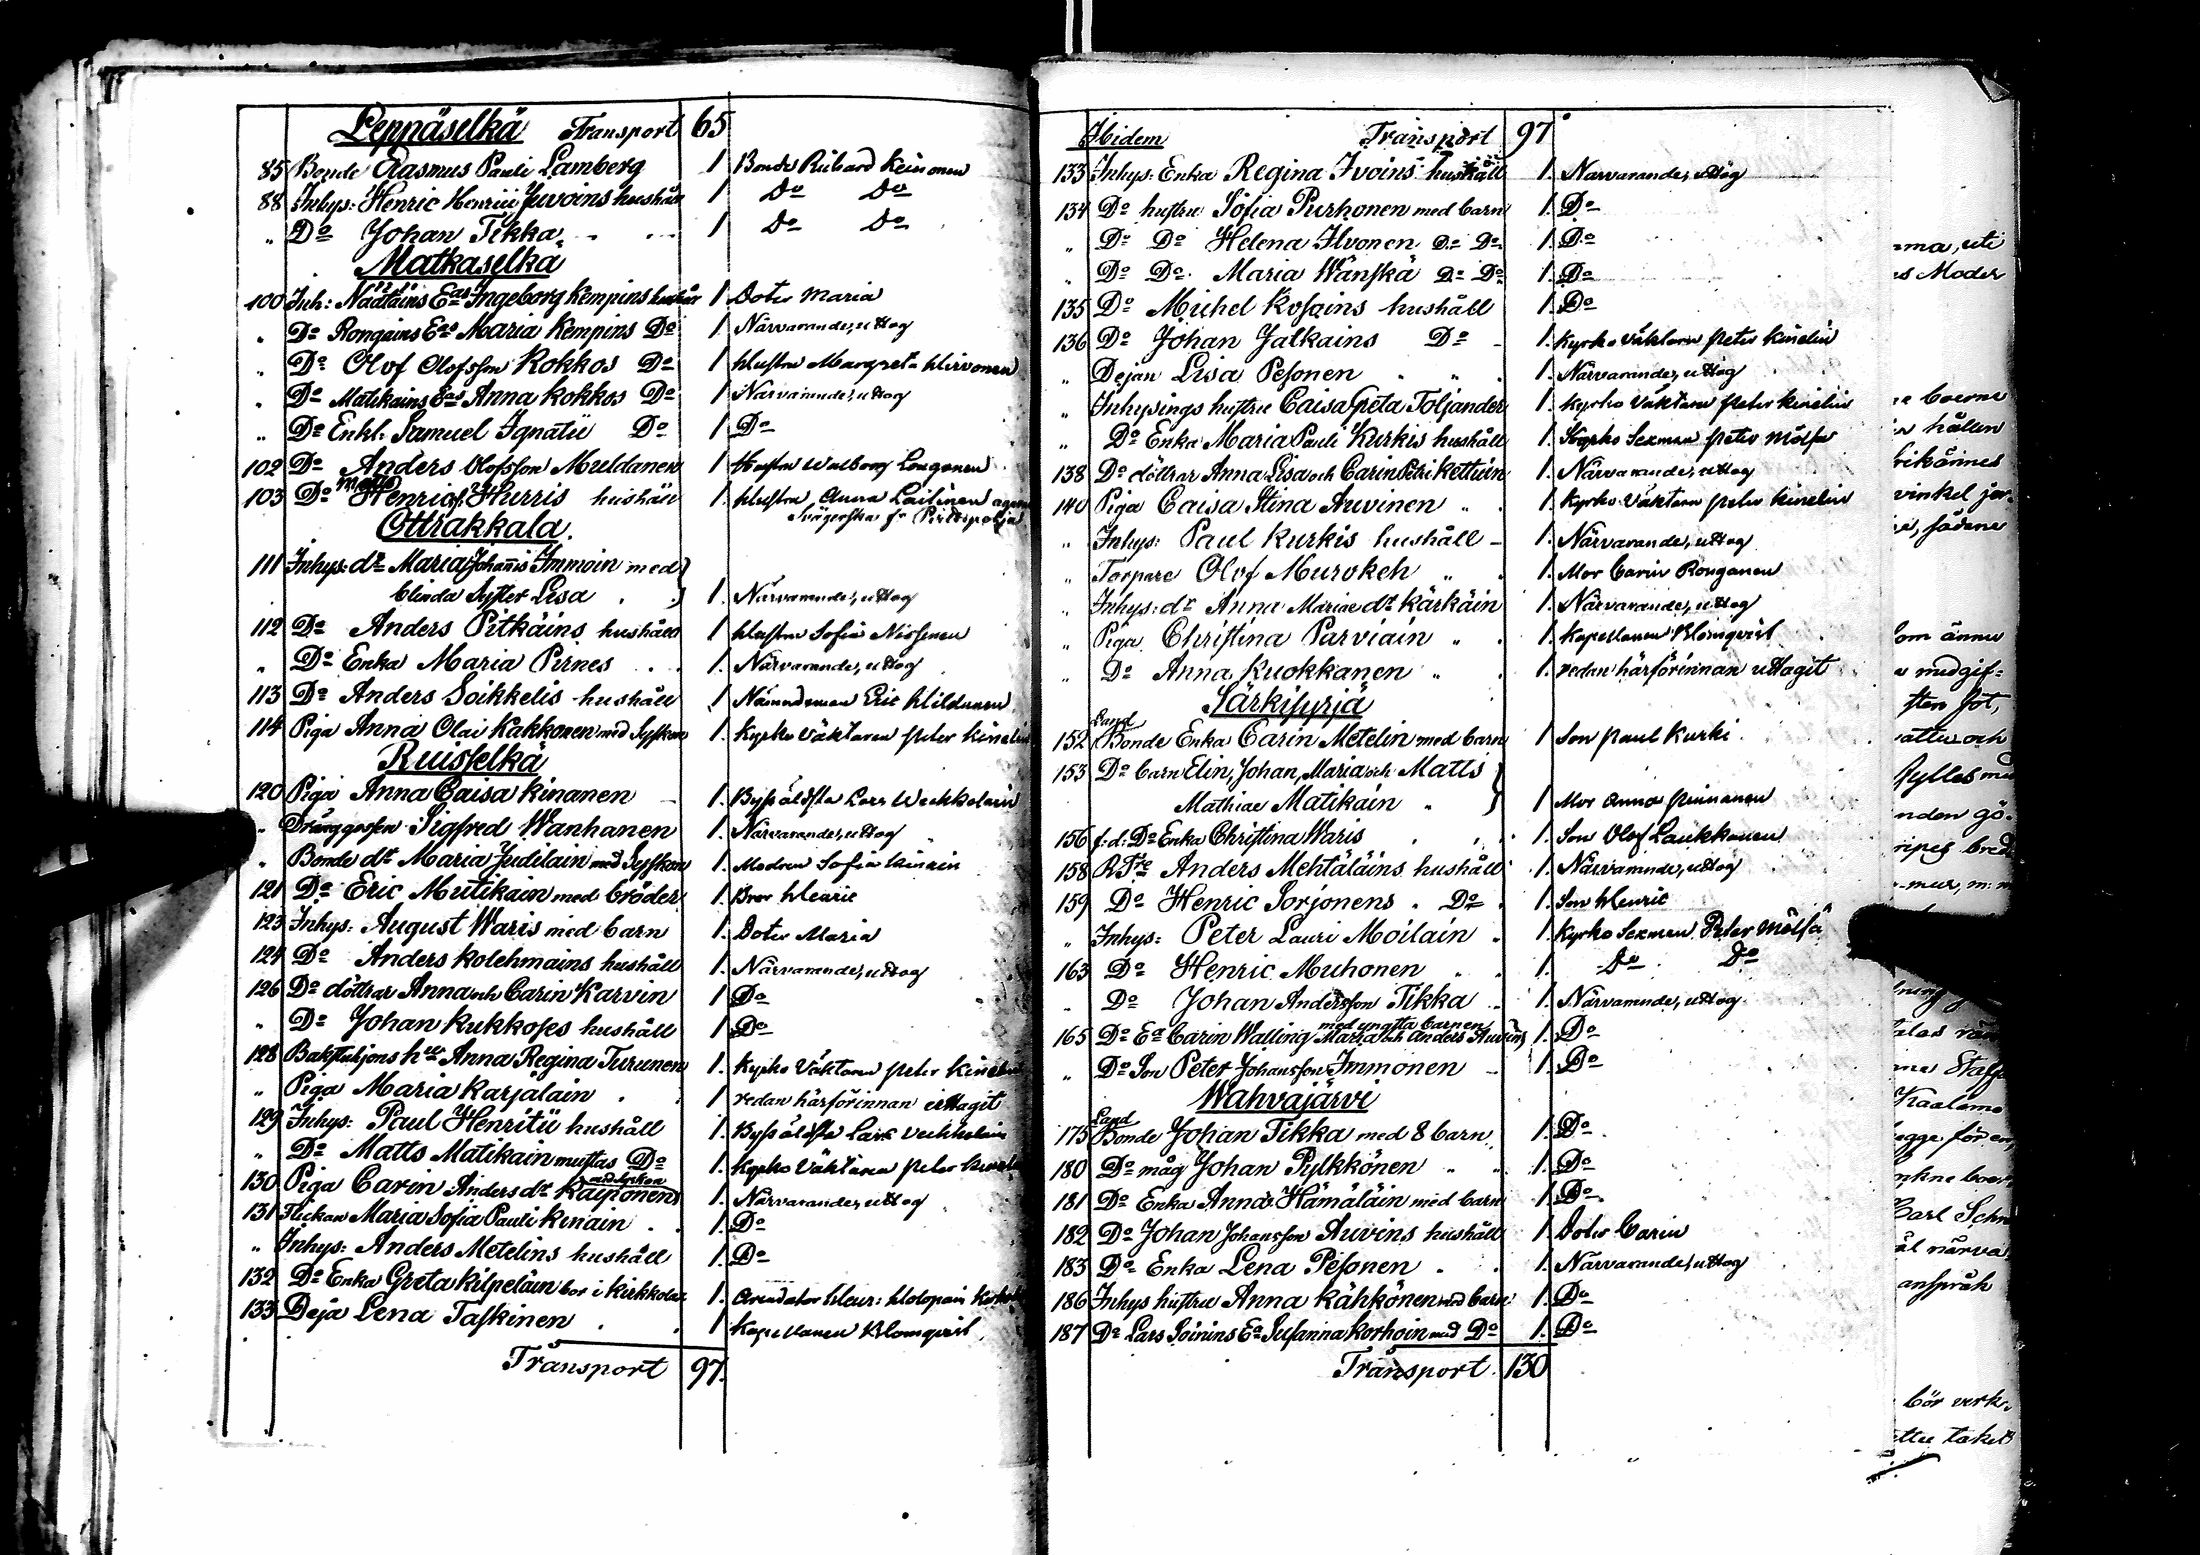 Leppäselkä Transport 65
85 Bonde Erasmus Pauli Lamberg 1 Bonde Richard Keinonen
88 Inhys: Henric Henrici Juvoins hushåll 1 Do Do
" Do Johan Tikka 1 Do Do
Matkaselkä
100 Inh: Näätäins Eas Ingeborg Kempins hushåll 1 Doter Maria
" Do Rongains Eas Maria Kempins Do 1 Närvarande, uttog
" Do Olof Olofsson Kokkos Do 1 Hustru Margreta Hirvonen
" Do Matikains Eas Anna Kokkos Do 1 Närvarande, uttog
" Do Enkl: Samuel Ignatii Do 1 Do
102 Do Anders Olofsson Muldanen 1 Hustru Walborg Louganen
103 Do Henric Hurris hushåll 1. Hustru Anna Laitinen
Svägerska fr
Ottrakkala.
111 Inhys: dr Maria Johannis Immoin med
blinda Syster Lisa 1. Närvarande, uttog
112 Do Anders Pitkäins hushåll 1 Hustru Sofia Nissenen
" Do Enka Maria Pirnes 1. Närvarande, uttog
113 Do Anders Soikkelis hushåll 1 Nämndeman Eric Hildunen
114 Piga Anna Olai Kakkonen med Syskon 1. Kyrko Väktaren Peter Kinelin
Ruisselkä
120 Piga Anna Caisa Kinanen 1. Byss äldsta Lars Weckkolain
" Dränggossen Sigfred Wanhanen 1. Närvarande, uttog
" Bonde dr Maria Judilain med Syskon 1. Modren Sofia Kinain
121 Do Eric Mutikain med bröder 1. Bror Henric
123 Inhys: August Waris med barn 1. Doter Maria
124 Do Anders Kolehmains hushåll 1. Närvarande, uttog
126 Do döttrar Anna och Carin Karvin 1 Do
" Do Johan Kukkoses hushåll 1 Do
128 Anna Regina Turunen 1. Kyrko Väktaren Peter Kinelin
" Piga Maria Karjalain 1 redan härförinnan uttagit
129 Inhys: Paul Henritii hushåll 1. Byss äldsta Lars
" Do Matts Matikain mustas Do 1. Kyrko Väktaren Peter Kinelin
130 Piga Carin Anders dr Kaiponen 1. Närvarande, uttog
131 Flickan Maria Sofia Pauli Kinain 1. Do
" Inhys: Anders Metelins hushåll 1 Do
132 Do Enka Greta Kilpeläin bor i Kirkkolax 1. Arendator Henr: Holopain
133 Deja Lena Taskinen 1 Kapellanen Blomqvist
Transport 97.
Ibidem Transport 97
133 Inhys: Enka Regina Ivoins hushåll 1. Närvarande, uttog
134 Do hustru Sofia Purhonen med barn 1. Do
" Do Do Helena Ilvonen Do Do 1. Do
" Do Do Maria Wänskä Do Do 1. Do
135 Do Michel Kosains hushåll 1. Do
136 Do Johan Jalkains Do 1. Kyrko Väktaren Peter Kinelin
" Dejan Lisa Pesonen 1. Närvarande, uttog
" Inhysings hustru Caisa Greta Toljander 1. Kyrko Väktaren Peter Kinelin
" Do Enka Maria Pauli Kurkis hushåll 1. Kyrko Sexman Peter Mölsä
138 Do döttrar Anna Lisa och Carin Petri Kettuin 1. Närvarande, uttog
140 Piga Caisa Stina Auvinen 1. Kyrko Väktaren Peter Kinelin
" Inhys: Paul Kurkis hushåll 1. Närvarande, uttog
" Torpare Olof Murokeh 1. Mor Carin Ronganen
" Inhys: dr Anna Mariae dr Kärkäin 1. Närvarande, uttog
" Piga Christina Parviain 1. Kapellanen Blomqvist
" Do Anna Kuokkanen 1. redan härförinnan uttagit
Särkisyrjä
Land
152 Bonde Enka Carin Metelin med barn 1 Son Paul Kurki
153 Do barn Elin, Johan, Maria och Matts
Mathiae Matikain " 1 Mor Anna Pinnanen
156 f:d: Do Enka Christina Waris 1. Son Olof Laukkanen
158 Anders Mehtäläins hushåll 1. Närvarande, uttog
159 Do Henric Sorjonens Do 1. Son Henric
" Inhys: Peter Lauri Moilain 1 Kyrko Sexman Peter Mölsä
163 Do Henric Muhonen 1. Do Do
" Do Johan Andersson Tikka 1. Närvarande, uttog
165 Do Ea Carin Walling med ungsta barnen Maria och Anders Auvins 1. Do
" Do Son Peter Johansson Immonen 1. Do
Wahvajärvi
Land
175 Bonde Johan Tikka med 8 barn 1 Do
180 Do måg Johan Pylkkönen 1. Do
181 Do Enka Anna Hämäläin med barn 1 Do
182 Do Johan Johansson Auvins hushåll 1 Doter Carin
183 Do Enka Lena Pesonen 1. Närvarande, uttog
186 Inhys hustru Anna Kähkönen med barn 1. Do
187 Do Lars Soinins Ea Susanna Korhoin med Do 1. Do
Transport 130